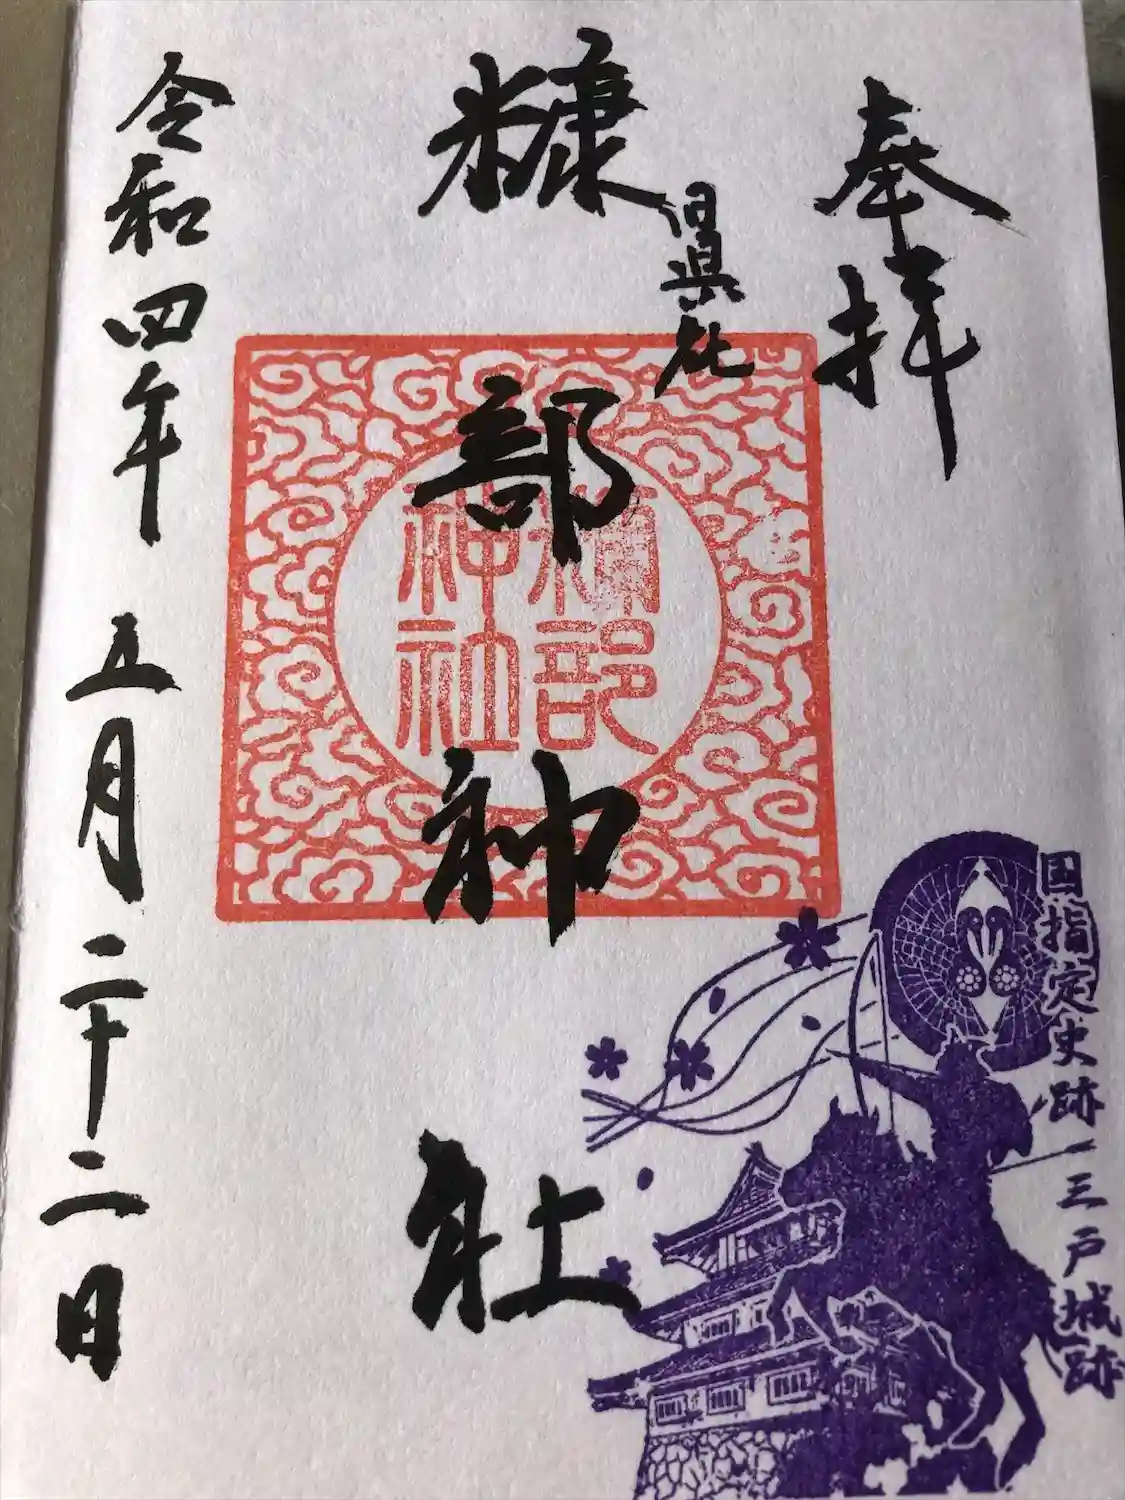 奉拝
旧県社
糠部神社
糠部
神社
令和四年五月二十二日
国指定史跡 三戸城跡